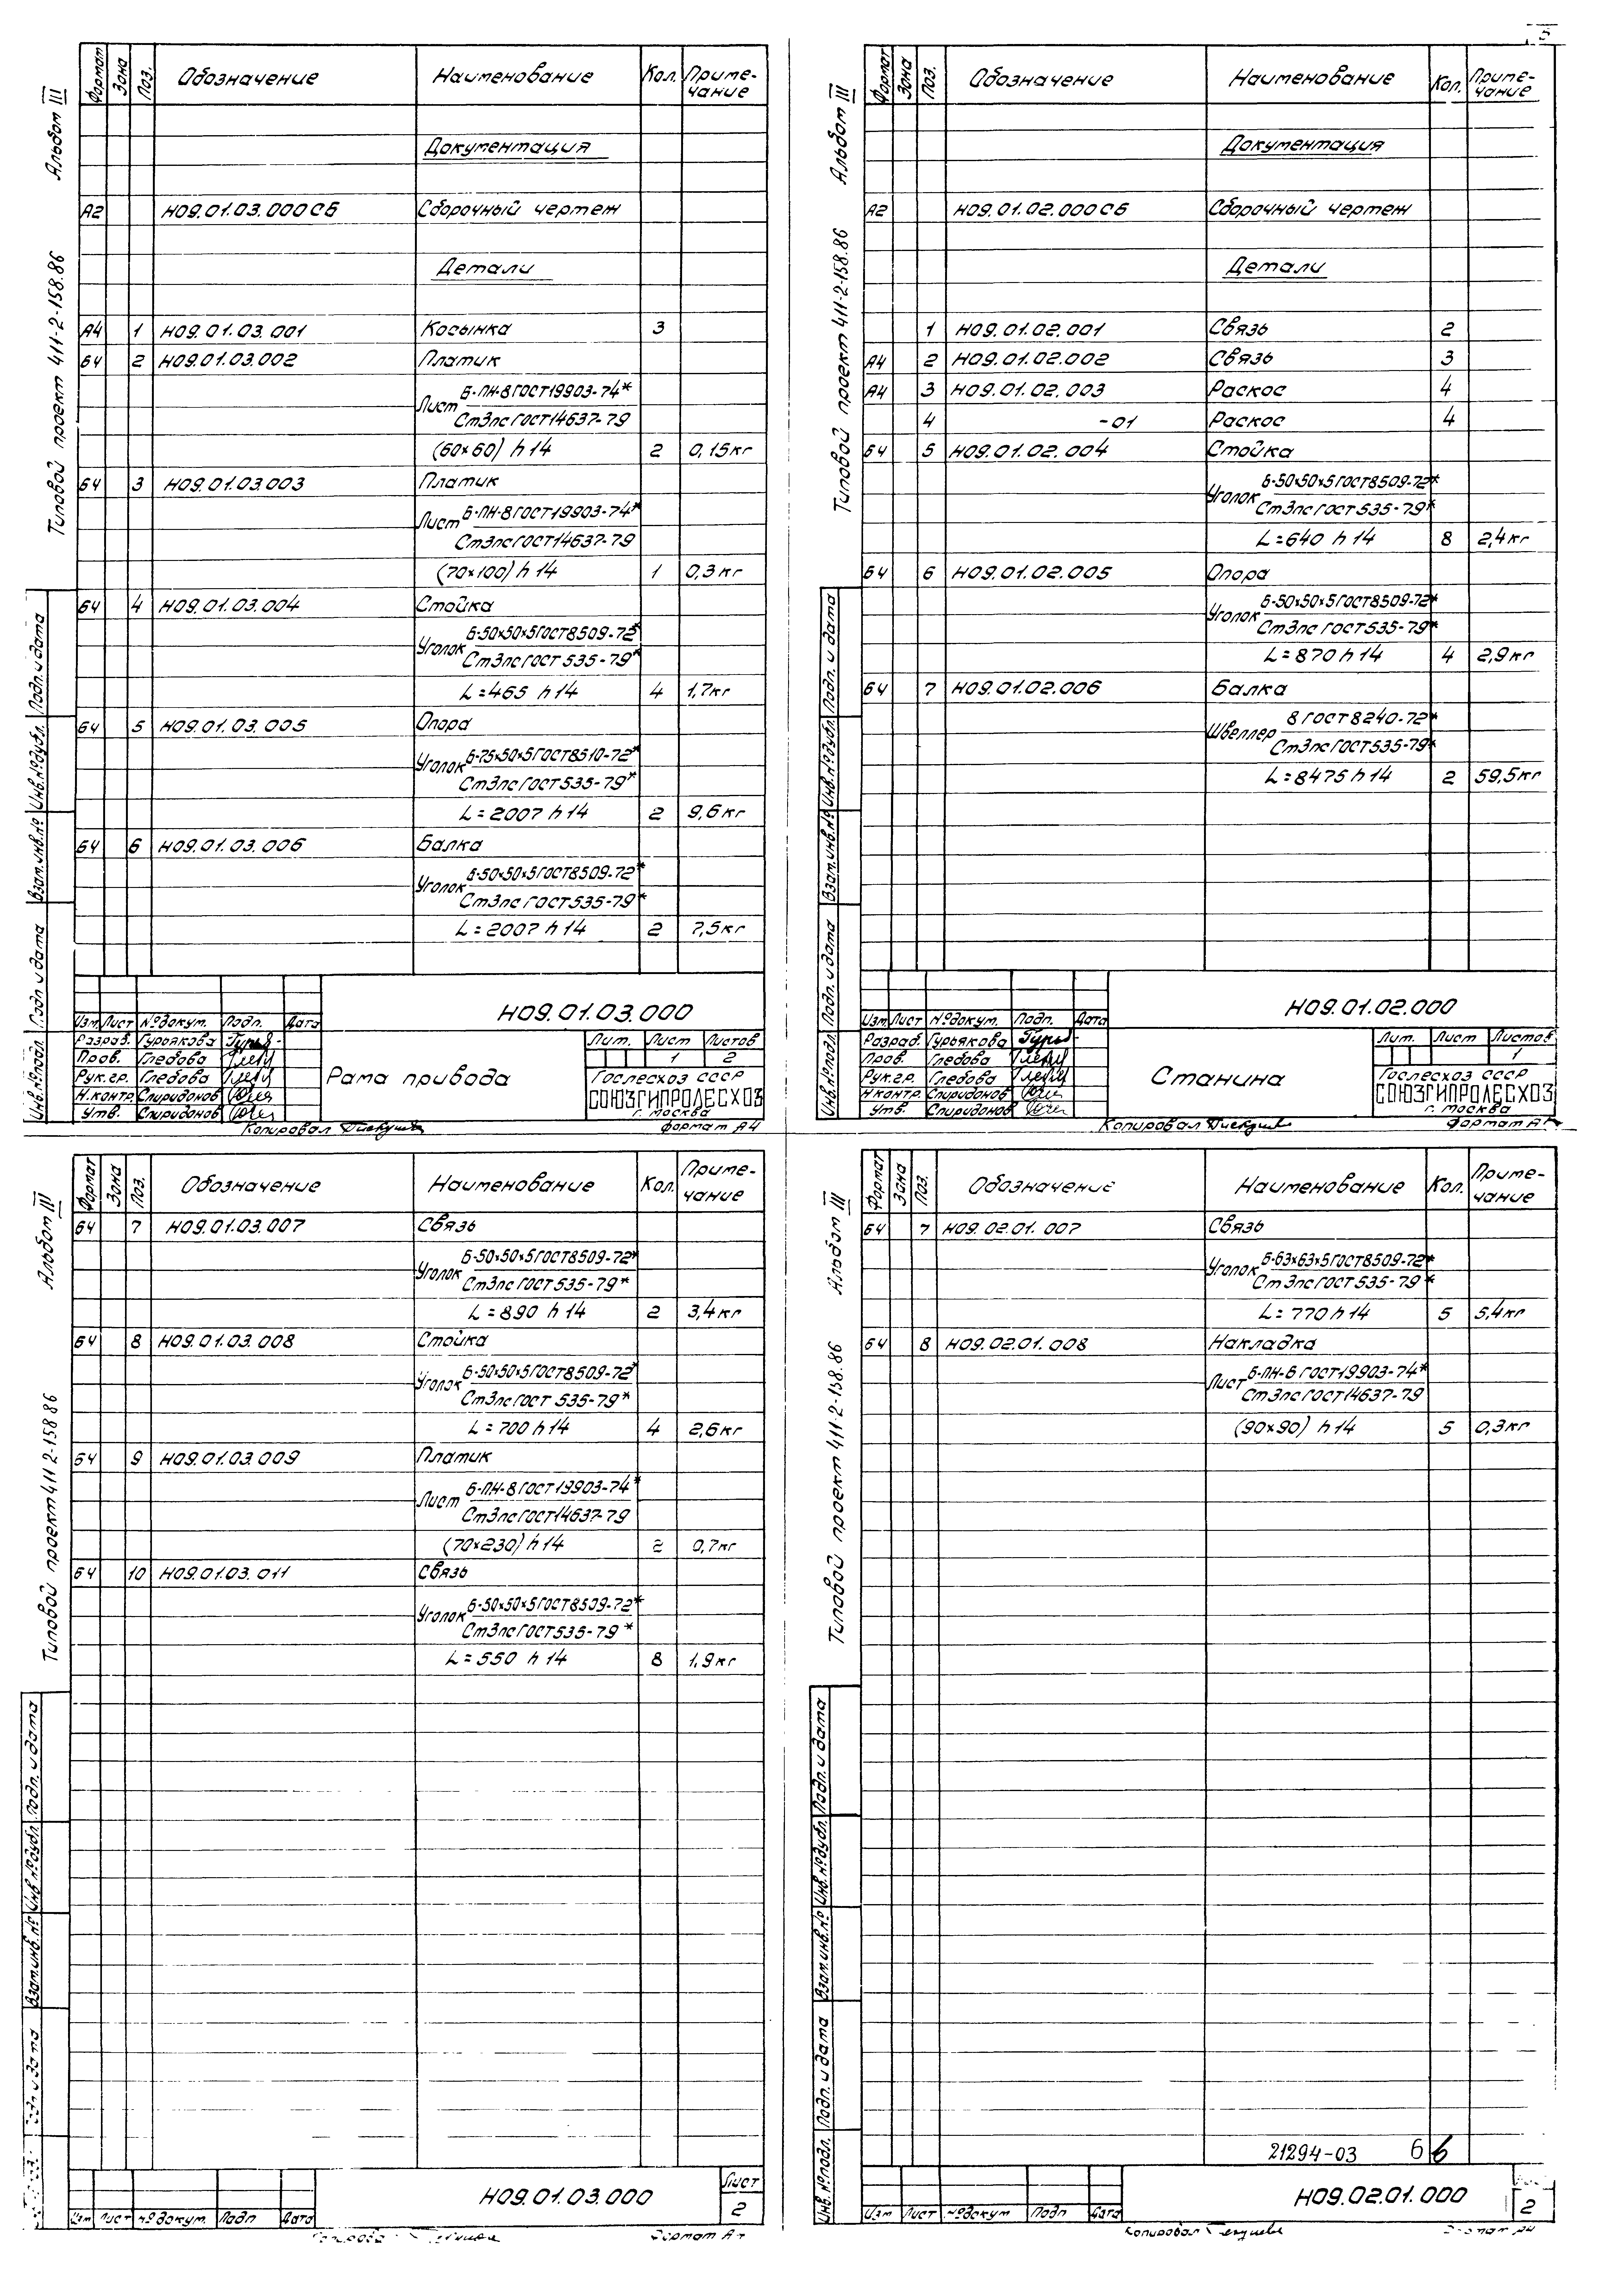 Альбом III
Типовой проект 411-2-158.86
Формат Зона Поз. Обозначение Наименование Кол. Приме-
чание
Документация
А2 Н09.01.03.000СБ Сборочный чертеж
Детали
А4 1 Н09.01.03.001 Косынка 3
БЧ 2 Н09.01.03.002 Платик
Лист Б-ПН-8 ГОСТ19903-74*
Ст3пс ГОСТ14637-79
(60×60) h14 2 0,15кг
БЧ 3 Н09.01.03.003 Платик
Лист Б-ПН-8 ГОСТ19903-74*
Ст3пс ГОСТ14637-79
(70×100) h14 1 0,3кг
БЧ 4 Н09.01.03.004 Стойка
Уголок Б-50×50×5 ГОСТ8509-72*
Ст3пс ГОСТ 535-79*
L=465 h14 4 1,7кг
БЧ 5 Н09.01.03.005 Опора
Уголок Б-75×50×5 ГОСТ8510-72*
Ст3пс ГОСТ 535-79*
L=2007 h14 2 9,6кг
БЧ 6 Н09.01.03.006 Балка
Уголок Б-50×50×5 ГОСТ8509-72*
Ст3пс ГОСТ535-79*
L=2007 h14 2 7,5кг
Н09.01.03.000
Изм. Лист №докум. Подп. Дата
Разраб. Гурьякова
Пров. Глебова
Рук.гр. Глебова
Н.контр. Спиридонов
Утв. Спиридонов
Рама привода
Лит. Лист Листов
1 2
Гослесхоз СССР
СОЮЗГИПРОЛЕСХОЗ
г. Москва
Копировал
Формат А4
Инв.№подл. Подп. и дата Взам.инв.№ Инв.№дубл. Подп. и дата
5
Альбом III
Типовой проект 411-2-158.86
Формат Зона Поз. Обозначение Наименование Кол. Приме-
чание
Документация
А2 Н09.01.02.000СБ Сборочный чертеж
Детали
1 Н09.01.02.001 Связь 2
А4 2 Н09.01.02.002 Связь 3
А4 3 Н09.01.02.003 Раскос 4
4 -01 Раскос 4
БЧ 5 Н09.01.02.004 Стойка
Уголок Б-50×50×5 ГОСТ8509-72*
Ст3пс ГОСТ535-79*
L=640 h14 8 2,4кг
БЧ 6 Н09.01.02.005 Опора
Уголок Б-50×50×5 ГОСТ8509-72*
Ст3пс ГОСТ535-79*
L=870 h14 4 2,9кг
БЧ 7 Н09.01.02.006 Балка
Швеллер 8 ГОСТ8240-72*
Ст3пс ГОСТ535-79*
L=8475 h14 2 59,5кг
Н09.01.02.000
Изм. Лист №докум. Подп. Дата
Разраб. Гурьякова
Пров. Глебова
Рук.гр. Глебова
Н.контр. Спиридонов
Утв. Спиридонов
Станина
Лит. Лист Листов
1
Гослесхоз СССР
СОЮЗГИПРОЛЕСХОЗ
г. Москва
Копировал
Формат А4
Инв.№подл. Подп. и дата Взам.инв.№ Инв.№дубл. Подп. и дата
Альбом III
Типовой проект 411 2-158 86
Формат Зона Поз. Обозначение Наименование Кол. Приме-
чание
БЧ 7 Н09.01.03.007 Связь
Уголок Б-50×50×5 ГОСТ8509-72*
Ст3пс ГОСТ535-79*
L=890 h14 2 3,4кг
БЧ 8 Н09.01.03.008 Стойка
Уголок Б-50×50×5 ГОСТ8509-72*
Ст3пс ГОСТ 535-79*
L=700 h14 4 2,6кг
БЧ 9 Н09.01.03.009 Платик
Лист Б-ПН-8 ГОСТ19903-74*
Ст3пс ГОСТ14637-79
(70×230) h14 2 0,7кг
БЧ 10 Н09.01.03.011 Связь
Уголок Б-50×50×5 ГОСТ8509-72*
Ст3пс ГОСТ535-79*
L=550 h14 8 1,9кг
Н09.01.03.000
Лист
2
Изм Лист №докум. Подп Дата
Формат А4
Взам.инв.№ Инв.№дубл. Подп. и дата
Альбом III
Типовой проект 411-2-158.86
Формат Зона Поз. Обозначение Наименование Кол. Приме-
чание
БЧ 7 Н09.02.01.007 Связь
Уголок Б-63×63×5 ГОСТ8509-72*
Ст3пс ГОСТ535-79*
L=770 h14 5 5,4кг
БЧ 8 Н09.02.01.008 Накладка
Лист Б-ПН-6 ГОСТ19903-74*
Ст3пс ГОСТ14637-79
(90×90) h14 5 0,3кг
21294-03 6 6
Н09.02.01.000
2
Изм Лист №докум Подп Дата
Копировал
Инв.№подл. Подп. и дата Взам.инв.№ Инв.№дубл. Подп. и дата